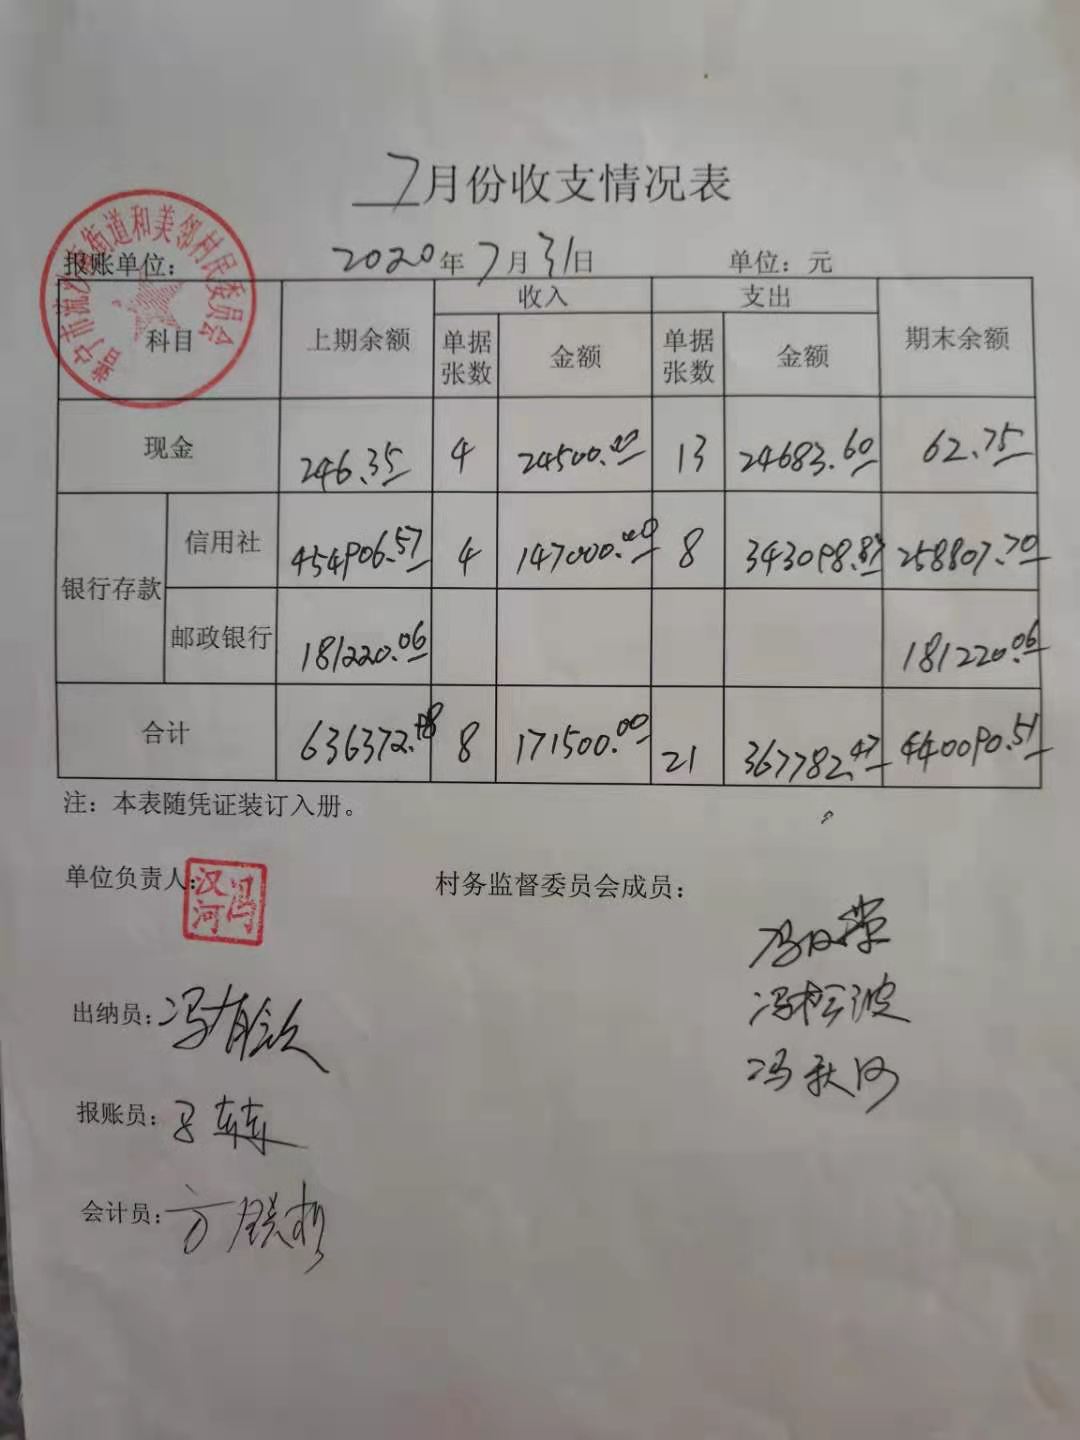 7月份收支情况表
报账单位： 2020年7月31日 单位：元
科目 上期余额 收入 支出 期末余额
单据张数 金额 单据张数 金额
现金 246.35 4 24500.00 13 24683.60 62.75
银行存款 信用社 454906.57 4 147000.00 8 343098.87 258807.70
邮政银行 181220.06 181220.06
合计 636372.98 8 171500.00 21 367782.47 440090.51
注：本表随凭证装订入册。
单位负责人： 冯汉河 村务监督委员会成员：
冯松波
冯秋河
出纳员：
报账员：
会计员：
普宁市流沙南街道和美邻村民委员会